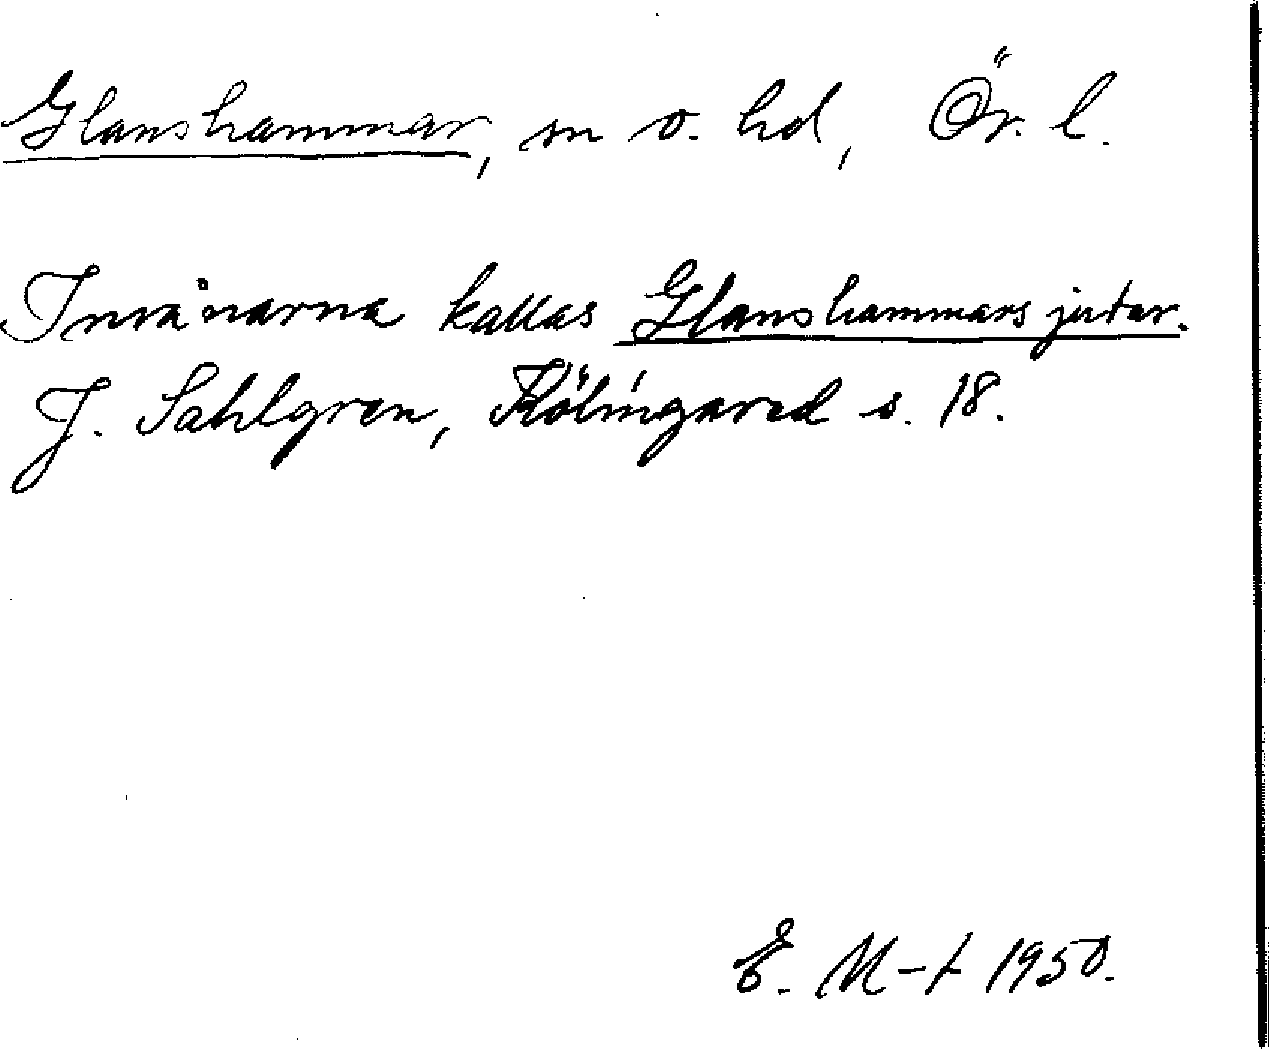 Glanshammar, sn o. hd, Ör. l.
Invånarna kallas Glanshammars jutar.
J. Sahlgren, Kölingared s. 18.
E. M-t 1950.